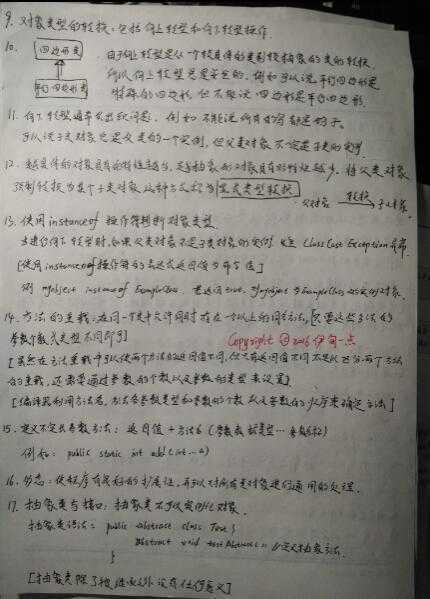 9. 对象类型的转换:包括向上转型和向下转型操作.
10. 四边形类 由于向上转型是从一个较具体的类到较抽象的类的转换.
所以向上转型总是安全的. 例如可以说平行四边形是
平行四边形类 特殊的四边形, 但不能说四边形是平行四边形.
11. 向下转型通常会出现问题. 例如不能说所有的鸟都是鸽子.
可以说子类对象总是父类的一个实例, 但父类对象不一定是子类的实例.
12. 越具体的对象具有的特性越多, 越抽象的对象具有的特性越少. 将父类对象
强制转换为某个子类对象这种方式称为显式类型转换.
父对象 转换 子对象.
13. 使用instanceof操作符判断对象类型.
当进行向下转型时, 如果父类对象不是子类对象的实例. 发生ClassCastException异常.
[使用instanceof操作符的表达式返回值为布尔值]
例 myobject instanceof ExampleClass. 若返回true, 则myobject为ExampleClass的实例对象.
14. 方法的重载: 在同一个类中允许同时存在一个以上的同名方法, 只要这些方法的
参数个数或类型不同即可
Copyright @2016 伊甸一点
[虽然在方法重载中可以使两个方法的返回值不同, 但只有返回值不同不足以区分两个方法
的重载, 还需要通过参数的个数以及参数的类型来设置]
[编译器利用方法名, 方法各参数类型和参数的个数以及参数的顺序来确定方法]
15. 定义不定长参数方法: 返回值+方法名(参数数据类型...参数名称)
例如: public static int add(int...a)
16. 多态: 使程序有良好的扩展性, 并可以对所有类对象进行通用的处理.
17. 抽象类与接口: 抽象类不可以实例化对象.
抽象类语法: public abstract class Test {
abstract void testAbstract(); //定义抽象方法.
}
[抽象类除了被继承之外没有任何意义]